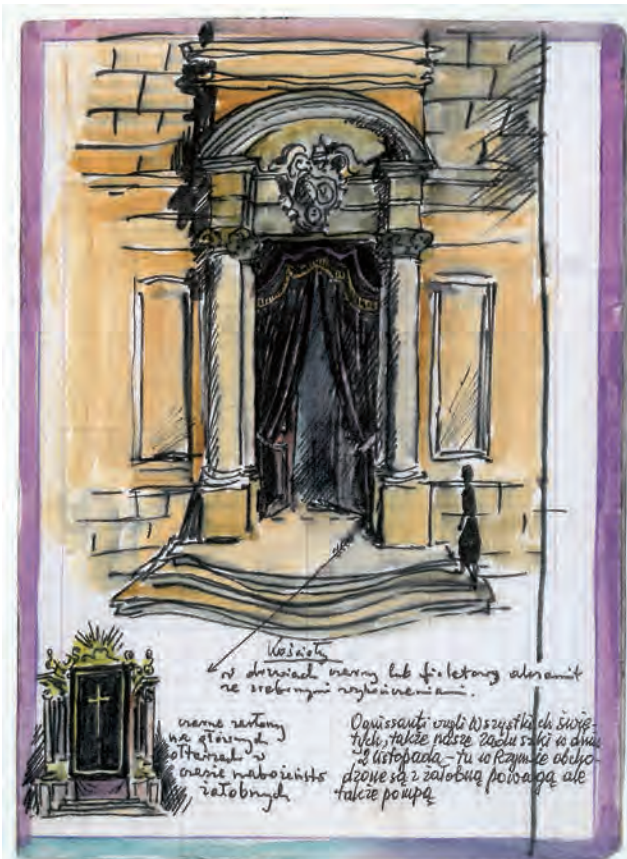 Kościoły
w drzwiach czarny lub fioletowy aksamit
ze srebrnymi wykończeniami.
czarne zasłony
na głównych
ołtarzach w
czasie nabożeństw
żałobnych
Ognissanti czyli Wszystkich Świę-
tych, także nasze zaduszki w dniu
2 listopada – tu w Rzymie obcho-
dzone są z żałobną powagą ale
także pompą